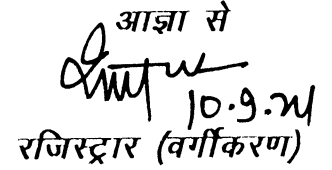 आज्ञा से
10.9.21
रजिस्ट्रार (वर्गीकरण)